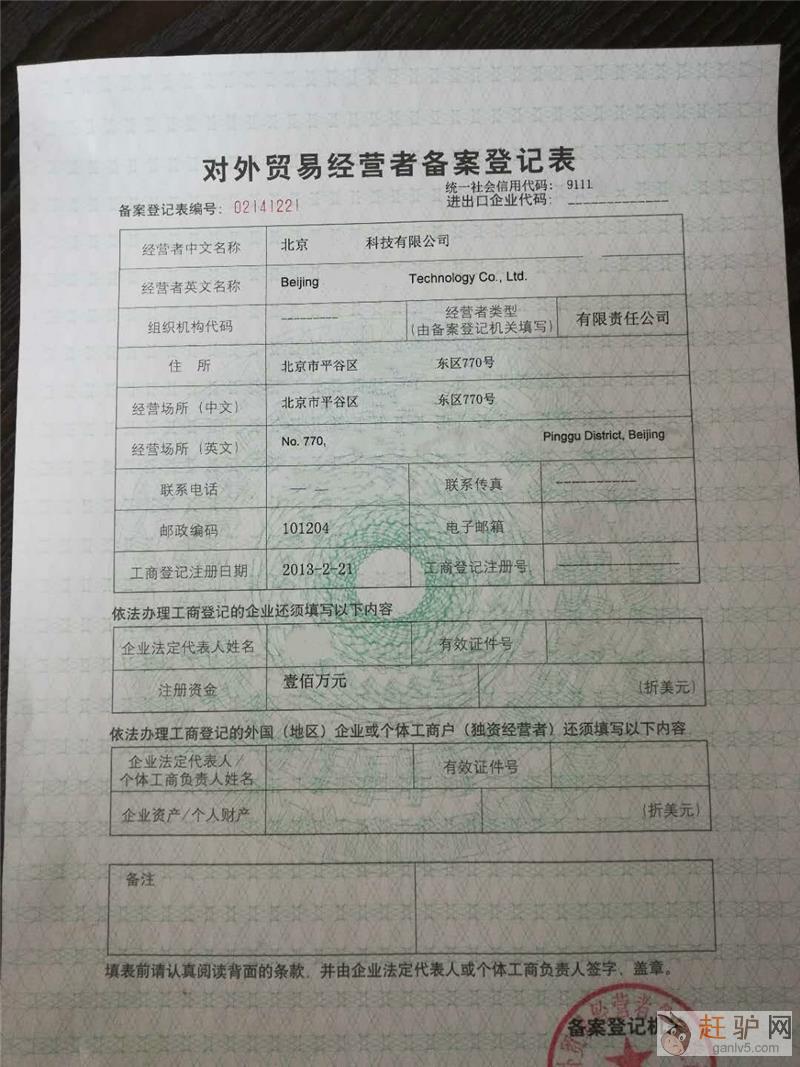 对外贸易经营者备案登记表
统一社会信用代码: 9111
备案登记表编号: 02141221
进出口企业代码: _____________
经营者中文名称 北京 科技有限公司
经营者英文名称 Beijing Technology Co., Ltd.
组织机构代码 --------- 经营者类型
(由备案登记机关填写) 有限责任公司
住 所 北京市平谷区 东区770号
经营场所（中文） 北京市平谷区 东区770号
经营场所（英文） No. 770, Pinggu District, Beijing
联系电话 — — 联系传真 ------------
邮政编码 101204 电子邮箱
工商登记注册日期 2013-2-21 工商登记注册号 ------------------
依法办理工商登记的企业还须填写以下内容
企业法定代表人姓名 有效证件号
注册资金 壹佰万元 (折美元)
依法办理工商登记的外国（地区）企业或个体工商户（独资经营者）还须填写以下内容
企业法定代表人/
个体工商负责人姓名 有效证件号
企业资产/个人财产 (折美元)
备注
填表前请认真阅读背面的条款，并由企业法定代表人或个体工商负责人签字、盖章。
备案登记机
赶驴网
ganlv5.com